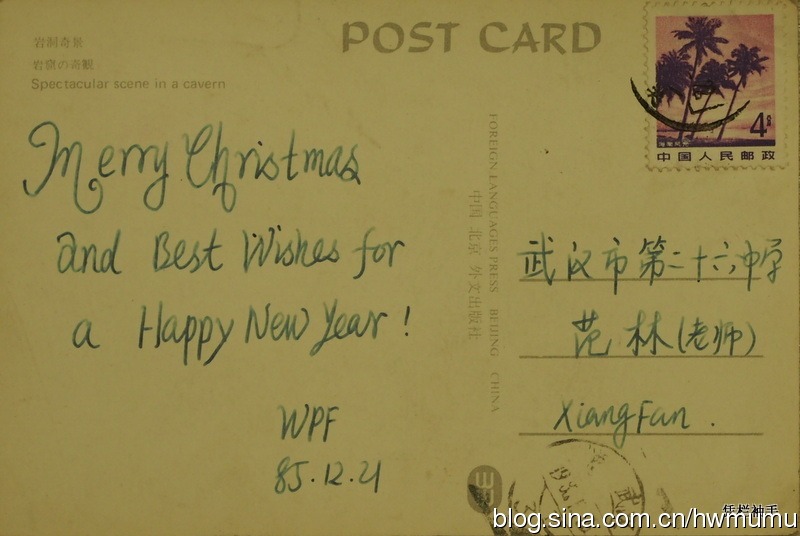 岩洞奇景
岩窟の奇観
Spectacular scene in a cavern
POST CARD
Merry Christmas
and Best Wishes for
a Happy New Year!
WPF
85.12.21
FOREIGN LANGUAGES PRESS BEIJING CHINA
中国 北京 外文出版社
4分
海南风光
中国人民邮政
武汉市第二十六中学
范林(老师)
XiangFan.
凭栏袖手
blog.sina.com.cn/hwmumu